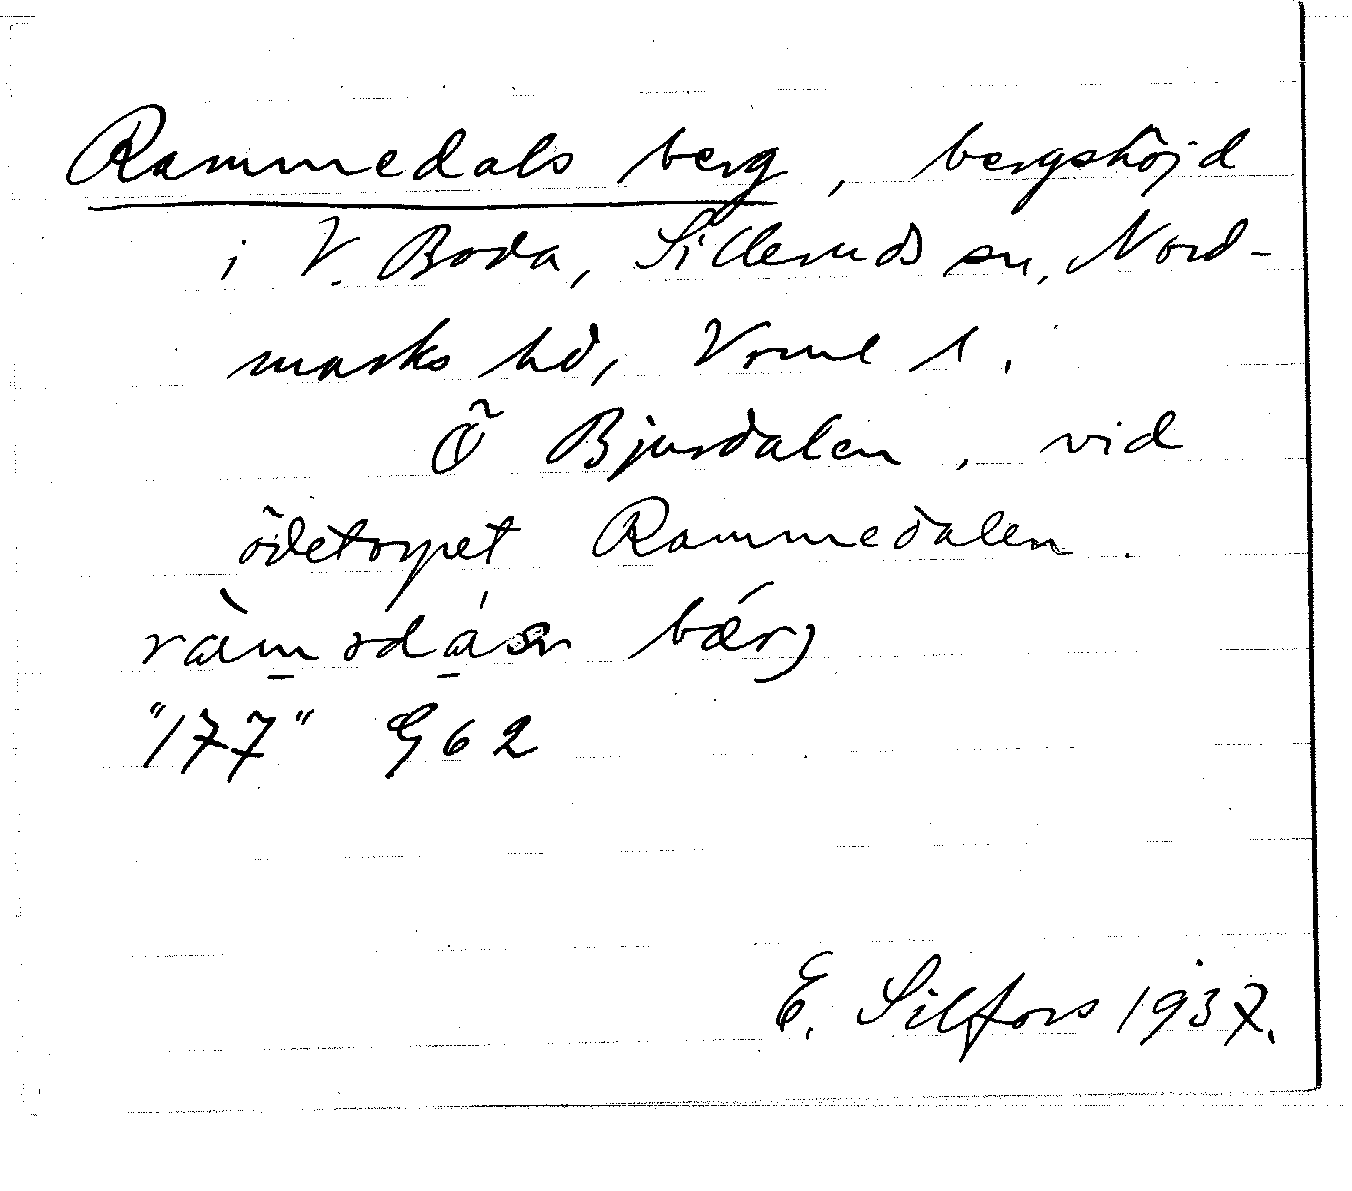 Rammedals berg, bergshöjd
i V. Boda, Silleruds sn, Nord-
marks hd, Vrml l.
Ö Bjurdalen, vid
ödetorpet Rammedalen.
bærj
"177" G62
E. Silfors 1937.